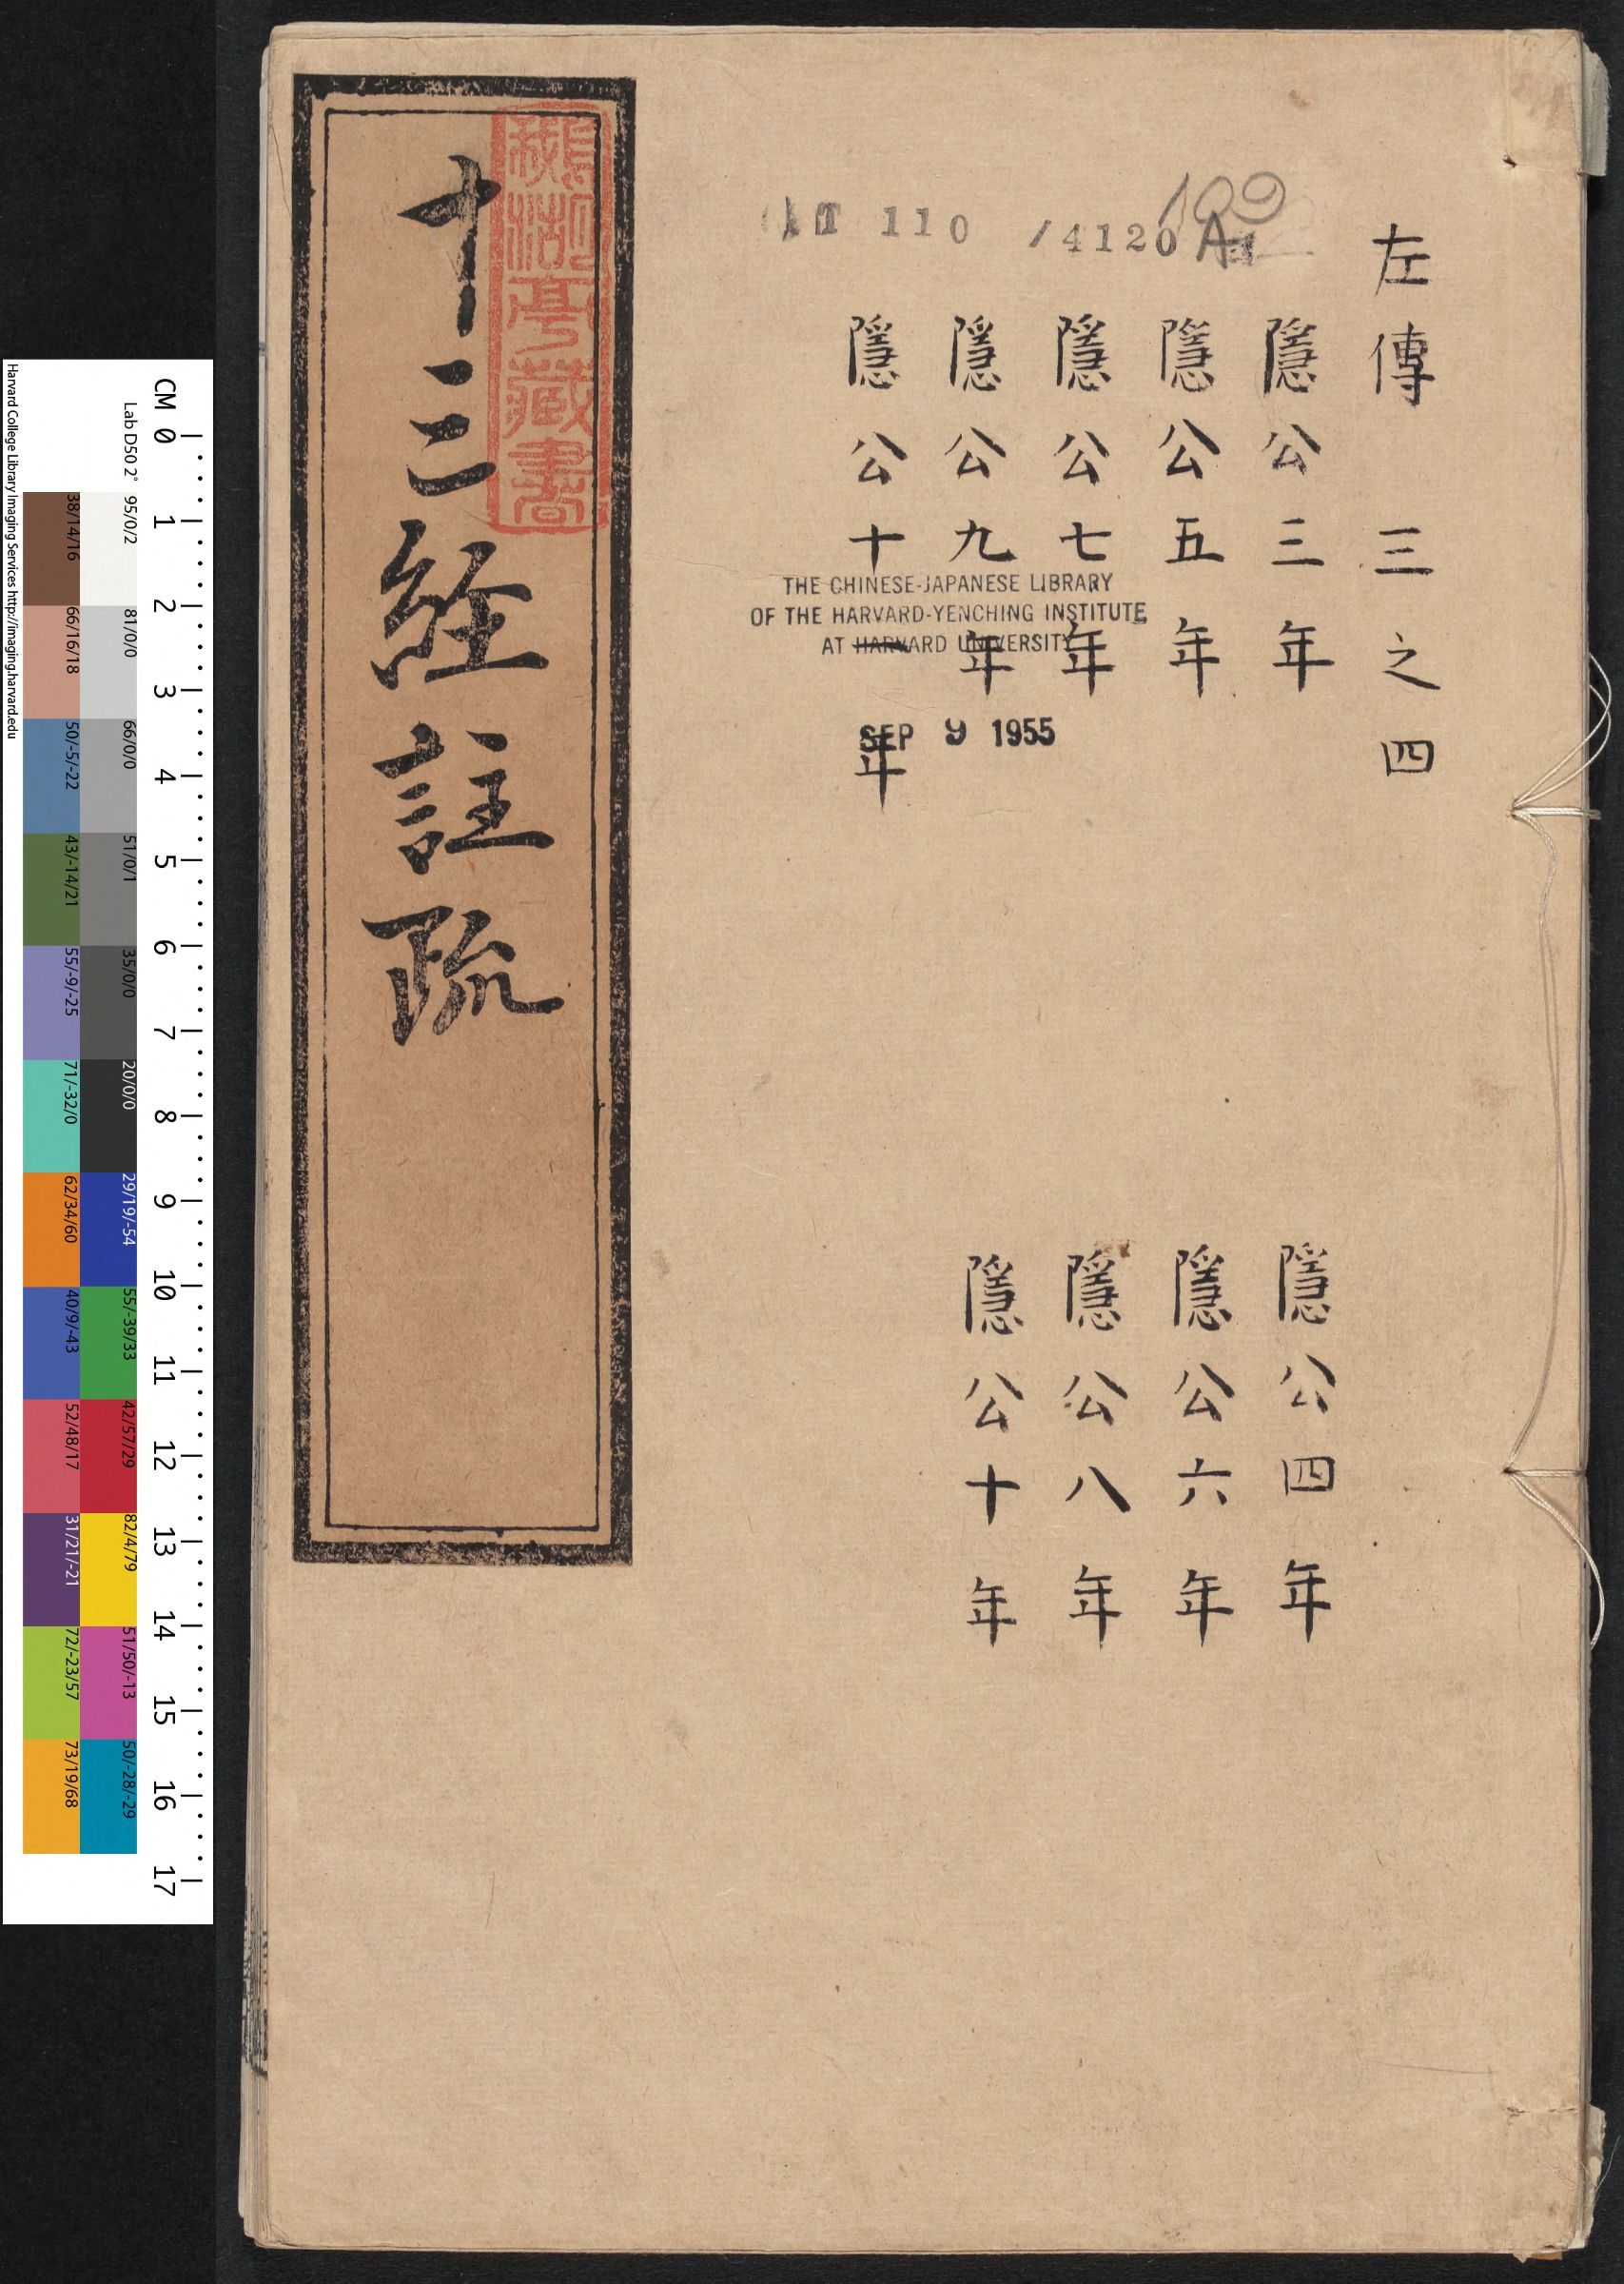 左傳 三之四
隱公三年
隱公四年
隱公五年
隱公六年
隱公七年
隱公八年
隱公九年
隱公十年
隱公十一年
十三經註疏
亭藏書
110 /4120
109
THE CHINESE-JAPANESE LIBRARY
OF THE HARVARD-YENCHING INSTITUTE
AT HARVARD UNIVERSITY
SEP 9 1955
Harvard College Library Imaging Services http://imaging.harvard.edu
Lab D50 2°
CM 0 1 2 3 4 5 6 7 8 9 10 11 12 13 14 15 16 17
95/0/2
81/0/0
66/0/0
51/0/1
35/0/0
20/0/0
29/19/-54
55/-39/33
42/57/29
82/4/79
51/50/-13
50/-28/-29
38/14/16
66/16/18
50/-5/-22
43/-14/21
55/-9/-25
71/-32/0
62/34/60
40/9/-43
52/48/17
31/21/-21
72/-23/57
73/19/68